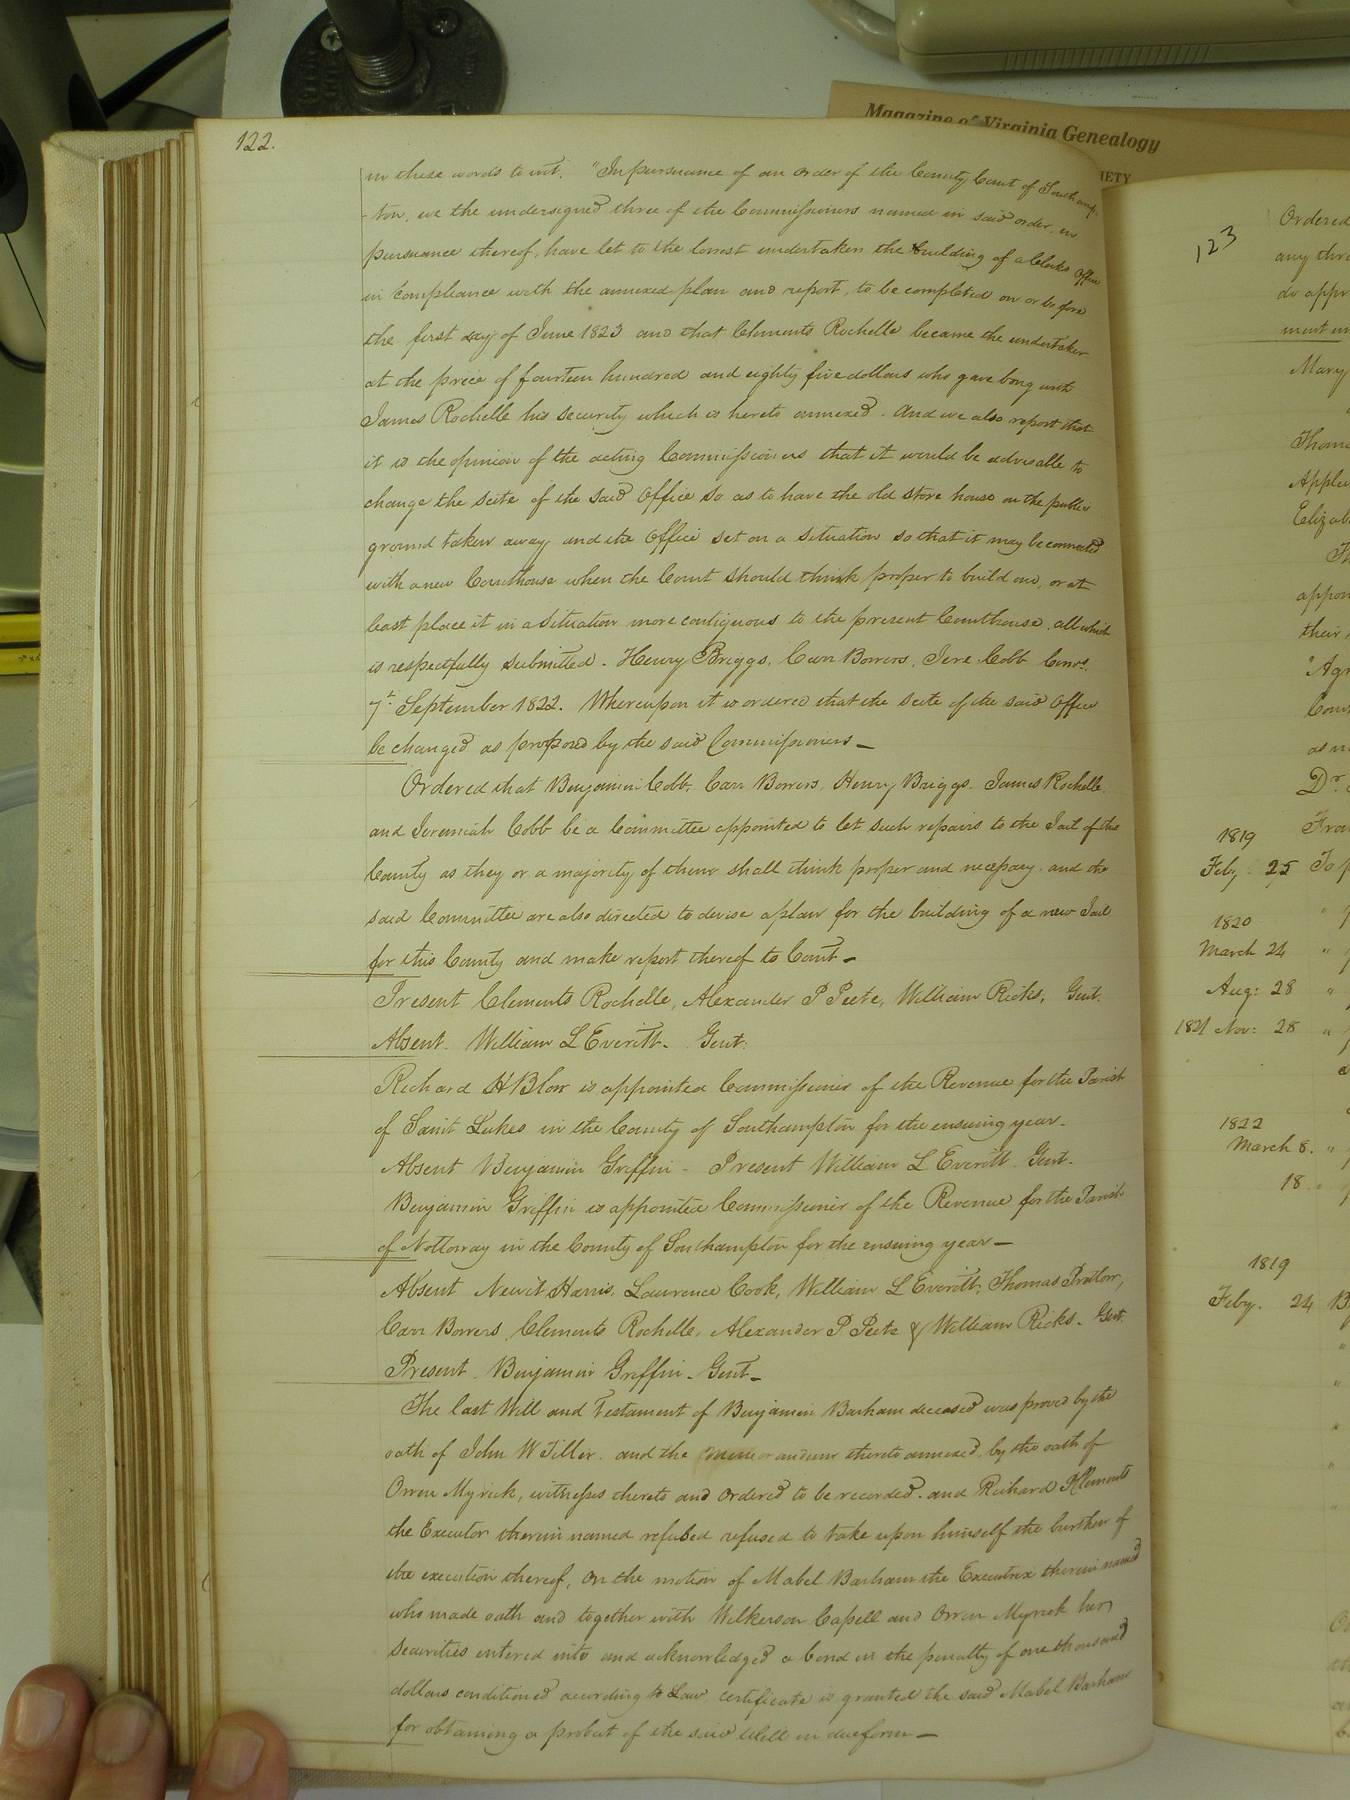 Magazine of Virginia Genealogy
IETY
122.
in these words to wit. "In pursuance of an order of the County Court of Southamp-
-ton, we the undersigned three of the Commissioners named in said order, in
pursuance thereof, have let to the lowest undertaker the building of a Clerks Office
in compliance with the annexed plan and report, to be completed on or before
the first day of June 1823 and that Clements Rochelle became the undertaker
at the price of fourteen hundred and eighty five dollars who gave bong with
James Rochelle his security which is hereto annexed. And we also report that
it is the opinion of the acting Commissioners that it would be advisable to
change the scite of the said Office so as to have the old store house on the public
ground taken away and the Office set on a situation so that it may be connected
with a new Courthouse when the Court should think proper to build one, or at
least place it in a situation more contiguous to the present Courthouse. all which
is respectfully submitted. Henry Briggs, Carr Bowers, Jere Cobb Comrs.
7th September 1822. Whereupon it is ordered that the scite of the said Office
be changed as proposed by the said Commissioners
Ordered that Benjamin Cobb, Carr Bowers, Henry Briggs, James Rochelle
and Jeremiah Cobb be a Committee appointed to let such repairs to the Jail of this
County as they or a majority of them shall think proper and necessary. and the
said Committee are also directed to devise a plan for the building of a new Jail
for this County and make report thereof to Court
Present Clements Rochelle, Alexander P Peete, William Ricks, Gent.
Absent. William L Everitt. Gent:
Richard H Blow is appointed Commissioner of the Revenue for the Parish
of Saint Lukes in the County of Southampton for the ensuing year.
Absent Benjamin Griffin - Present William L Everitt Gent.
Benjamin Griffin is appointed Commissioner of the Revenue for the Parish
of Nottoway in the County of Southampton for the ensuing year
Absent Newit Harris, Lawrence Cook, William L Everitt, Thomas Pretlow,
Carr Bowers, Clements Rochelle, Alexander P Peete & William Ricks. Gent.
Present. Benjamin Griffin. Gent
The last Will and Testament of Benjamin Barham deceased was proved by the
oath of John W Tiller. and the memorandum thereto annexed by the oath of
Orren Myrick, witnesses thereto and ordered to be recorded. and Richard Klements
the Executor therein named refused refused to take upon himself the burthen of
the execution thereof, on the motion of Mabel Barham the Executrix therein named
who made oath and together with Wilkerson Capell and Orren Myrick her
securities entered into and acknowledged a bond in the penalty of one thousand
dollars conditioned according to Law, certificate is granted the said Mabel Barham
for obtaining a probat of the said Will in due form
123
Ordered
any thr
do appr
Mary
Thom
Elizab
appoi
their
"Agr
as m
Dr.
1819
Feby 25 To
1820
March 24 "
Aug: 28 "
1821 Nov: 28 "
1822
March 8. "
18 "
1819
Feby. 24